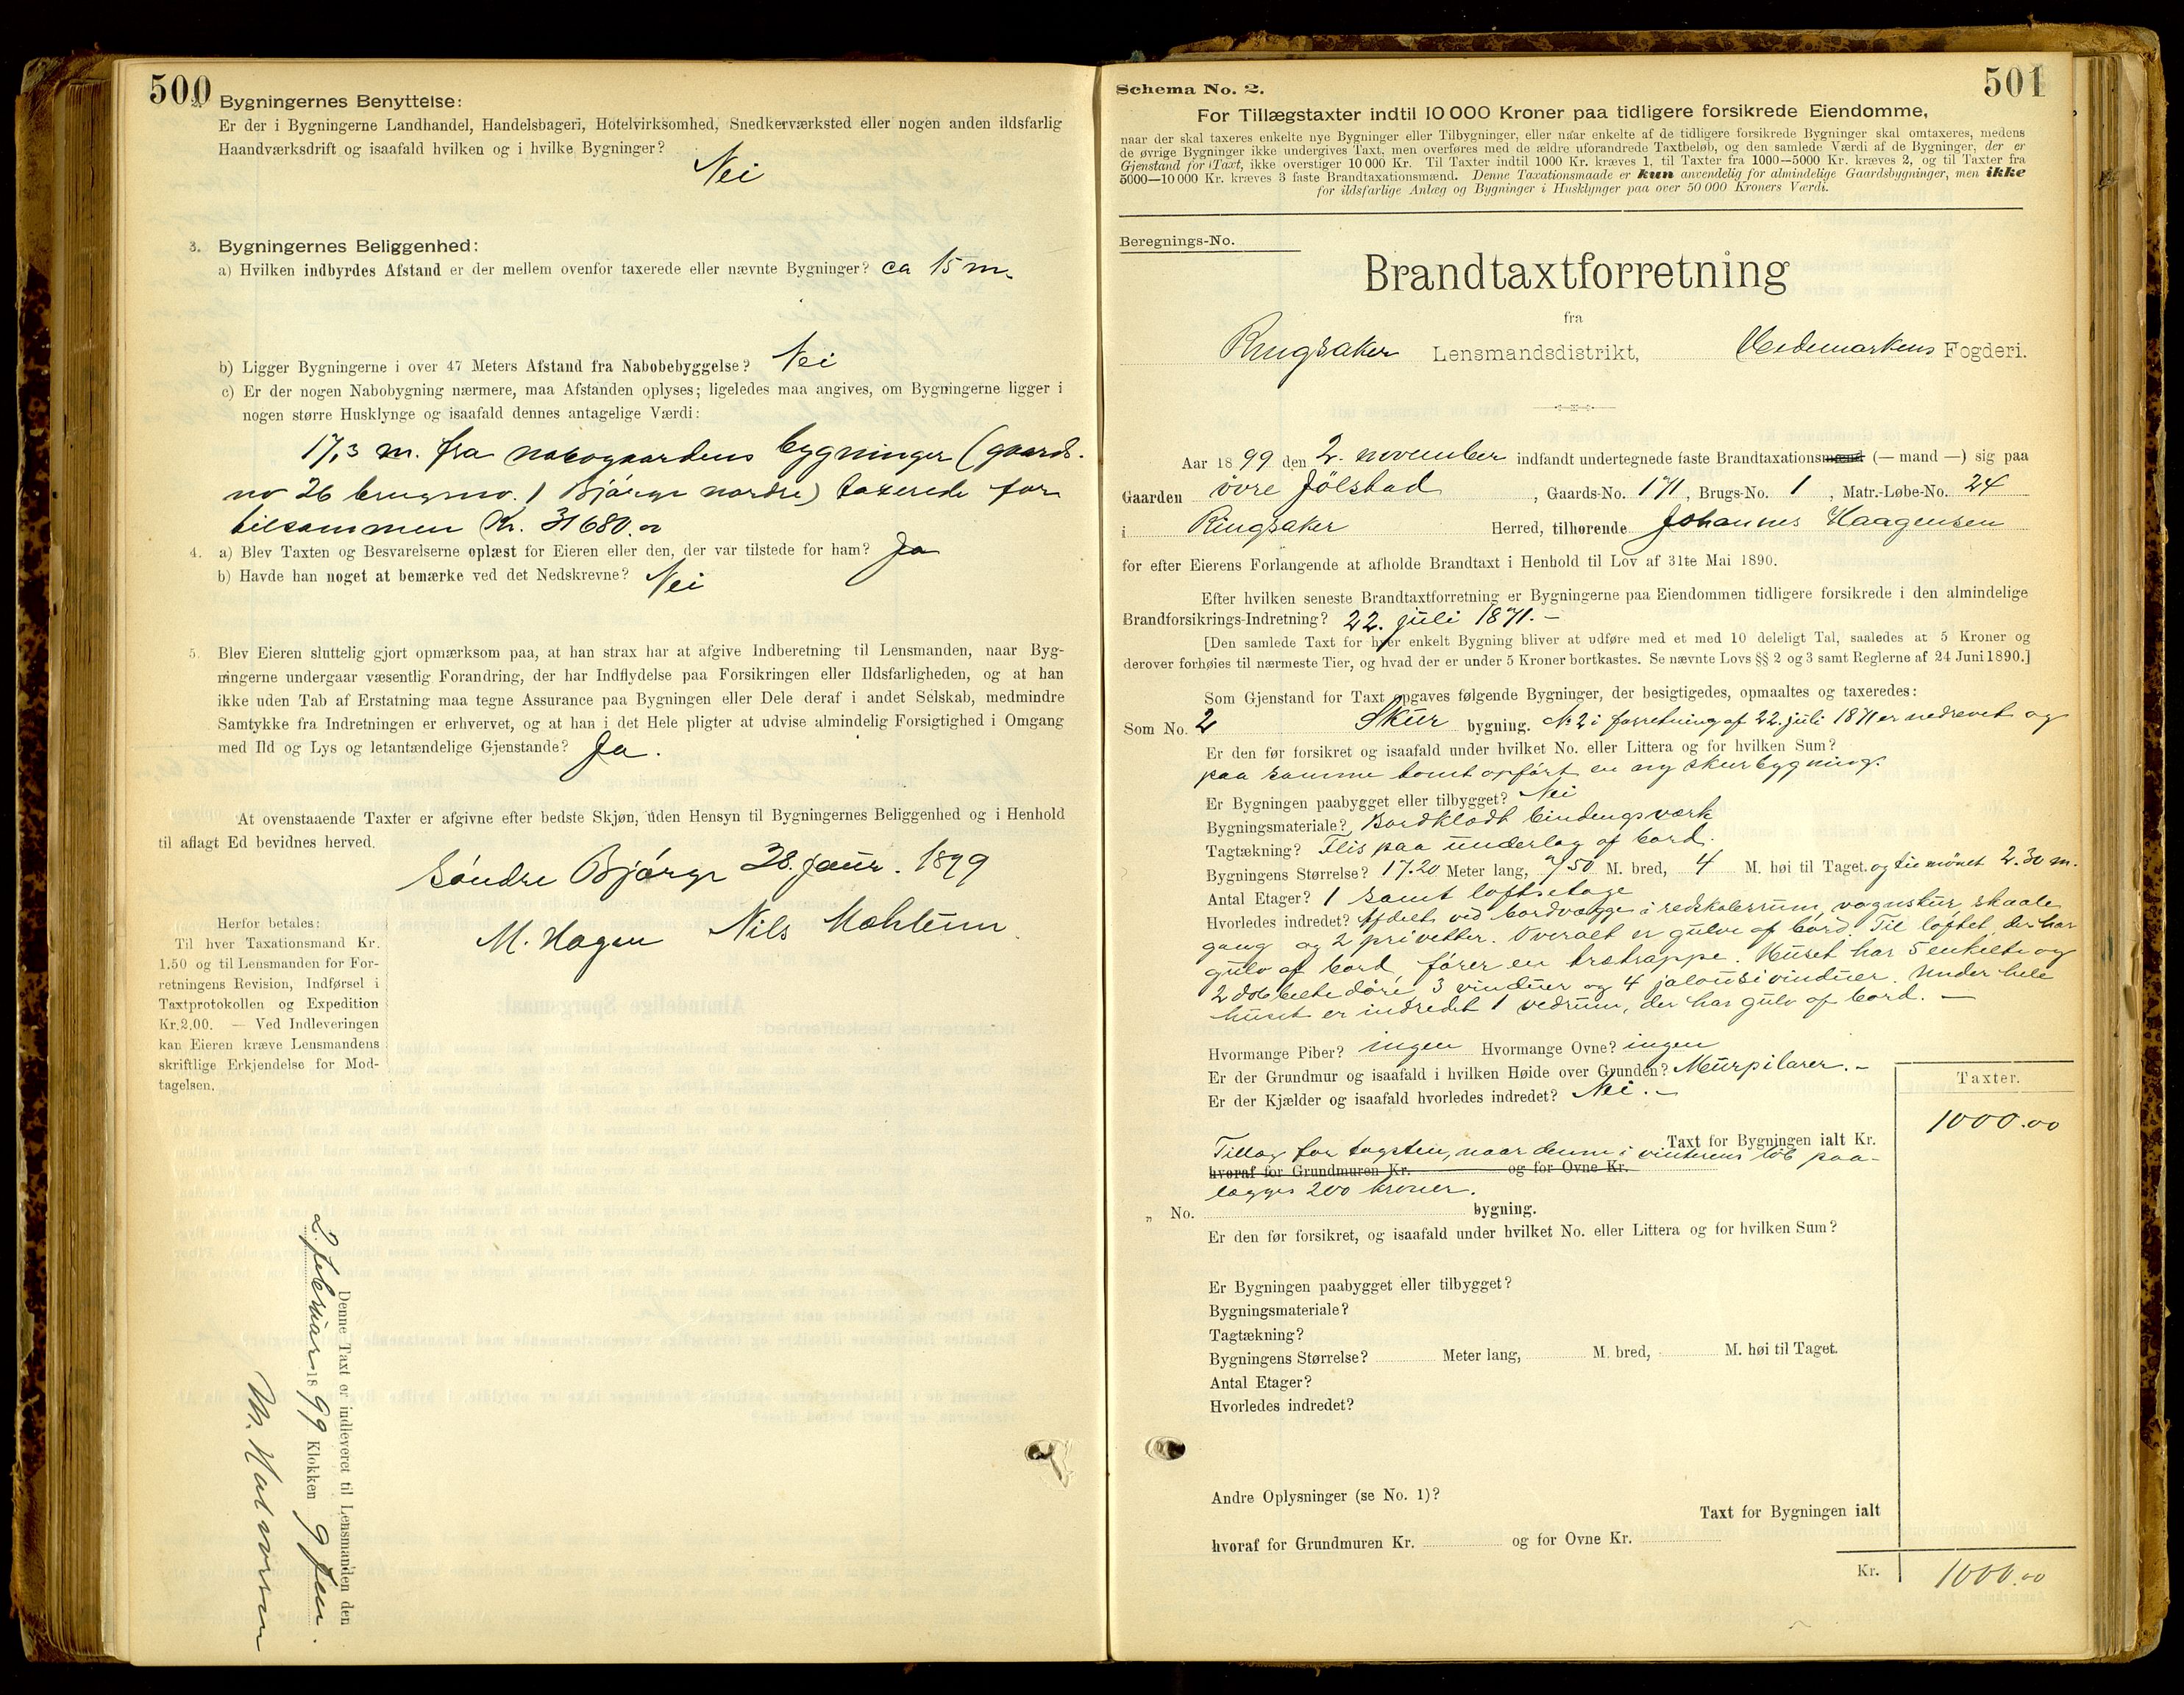 500
2. Bygningernes Benyttelse:
Er der i Bygningerne Landhandel, Handelsbageri, Hotelvirksomhed, Snedkerværksted eller nogen anden ildsfarlig
Haandværksdrift og isaafald hvilken og i hvilke Bygninger?
Nei
3. Bygningernes Beliggenhed:
a) Hvilken indbyrdes Afstand er der mellem ovenfor taxerede eller nævnte Bygninger? ca 15 m.
b) Ligger Bygningerne i over 47 Meters Afstand fra Nabobebyggelse? Nei
c) Er der nogen Nabobygning nærmere, maa Afstanden oplyses; ligeledes maa angives, om Bygningerne ligger i
nogen større Husklynge og isaafald dennes antagelige Værdi:
17,3 m. fra nabogaardens bygninger (gaards-
no 26 brugsno. 1 Bjørge nordre) taxerede for
tilsammen Kr. 31680.00
4. a) Blev Taxten og Besvarelserne oplæst for Eieren eller den, der var tilstede for ham? Ja
b) Havde han noget at bemærke ved det Nedskrevne? Nei
5. Blev Eieren sluttelig gjort opmærksom paa, at han strax har at afgive Indberetning til Lensmanden, naar Byg-
ningerne undergaar væsentlig Forandring, der har Indflydelse paa Forsikringen eller Ildsfarligheden, og at han
ikke uden Tab af Erstatning maa tegne Assurance paa Bygningen eller Dele deraf i andet Selskab, medmindre
Samtykke fra Indretningen er erhvervet, og at han i det Hele pligter at udvise almindelig Forsigtighed i Omgang
med Ild og Lys og letantændelige Gjenstande? Ja.
At ovenstaaende Taxter er afgivne efter bedste Skjøn, uden Hensyn til Bygningernes Beliggenhed og i Henhold
til aflagt Ed bevidnes herved.
Søndre Bjørge 28. Janr. 1899
M. Hagen Nils Mæhlum
Herfor betales:
Til hver Taxationsmand Kr.
1.50 og til Lensmanden for For-
retningens Revision, Indførsel i
Taxtprotokollen og Expedition
Kr. 2.00. — Ved Indleveringen
kan Eieren kræve Lensmandens
skriftlige Erkjendelse for Mod-
tagelsen.
Denne Taxt er indleveret til Lensmanden den
2. februar 1899 Klokken 9 Fm.
M. Halvorsen
501
Schema No. 2.
For Tillægstaxter indtil 10 000 Kroner paa tidligere forsikrede Eiendomme,
naar der skal taxeres enkelte nye Bygninger eller Tilbygninger, eller naar enkelte af de tidligere forsikrede Bygninger skal omtaxeres, medens
de øvrige Bygninger ikke undergives Taxt, men overføres med de ældre uforandrede Taxtbeløb, og den samlede Værdi af de Bygninger, der er
Gjenstand for Taxt, ikke overstiger 10 000 Kr. Til Taxter indtil 1000 Kr. kræves 1, til Taxter fra 1000—5000 Kr. kræves 2, og til Taxter fra
5000—10 000 Kr. kræves 3 faste Brandtaxationsmænd. Denne Taxationsmaade er kun anvendelig for almindelige Gaardsbygninger, men ikke
for ildsfarlige Anlæg og Bygninger i Husklynger paa over 50 000 Kroners Værdi.
Beregnings-No.
Brandtaxtforretning
fra
Ringsaker Lensmandsdistrikt, Hedemarkens Fogderi.
Aar 1899 den 2. november indfandt undertegnede faste Brandtaxationsmænd (— mand —) sig paa
Gaarden øvre Jølstad, Gaards-No. 171, Brugs-No. 1, Matr.-Løbe-No. 24
i Ringsaker Herred, tilhørende Johannes Haagensen
for efter Eierens Forlangende at afholde Brandtaxt i Henhold til Lov af 31te Mai 1890.
Efter hvilken seneste Brandtaxtforretning er Bygningerne paa Eiendommen tidligere forsikrede i den almindelige
Brandforsikrings-Indretning? 22. juli 1871. -
[Den samlede Taxt for hver enkelt Bygning bliver at udføre med et med 10 deleligt Tal, saaledes at 5 Kroner og
derover forhøies til nærmeste Tier, og hvad der er under 5 Kroner bortkastes. Se nævnte Lovs §§ 2 og 3 samt Reglerne af 24 Juni 1890.]
Som Gjenstand for Taxt opgaves følgende Bygninger, der besigtigedes, opmaaltes og taxeredes:
Som No. 2 Skur bygning. N. 2 i forretning af 22. juli 1871 er nedrevet og
Er den før forsikret og isaafald under hvilket No. eller Littera og for hvilken Sum?
paa samme tomt opført en ny skurbygning.
Er Bygningen paabygget eller tilbygget? Nei
Bygningsmateriale? Bordklædt bindingsværk
Tagtækning? Flis paa underlag af bord.
Bygningens Størrelse? 17.20 Meter lang, 7.50 M. bred, 4 M. høi til Taget. og til mønet 2.30 m.
Antal Etager? 1 samt loftsetage
Hvorledes indredet? Afdelt ved bordvægge i redskabsrum, vognskur, skaale
gang og 2 privetter. Overalt er gulve af bord. Til loftet, der har
gulv af bord, fører en trætrappe. Huset har 5 enkelte og
2 dobbelte døre, 3 vinduer og 4 jalousivinduer. Under hele
huset er indredet 1 vedrum, der har gulv af bord. —
Hvormange Piber? ingen Hvormange Ovne? ingen
Er der Grundmur og isaafald i hvilken Høide over Grunden? Murpilarer. -
Er der Kjælder og isaafald hvorledes indredet? Nei. -
Taxter.
Taxt for Bygningen ialt Kr. 1000.00
Tillæg for tagsten, naar denne i vinterens løb paa-
hvoraf for Grundmuren Kr. og for Ovne Kr.
lægges 200 kroner.
„ No. bygning.
Er den før forsikret, og isaafald under hvilket No. eller Littera og for hvilken Sum?
Er Bygningen paabygget eller tilbygget?
Bygningsmateriale?
Tagtækning?
Bygningens Størrelse? Meter lang, M. bred, M. høi til Taget.
Antal Etager?
Hvorledes indredet?
Andre Oplysninger (se No. 1)?
Taxt for Bygningen ialt
hvoraf for Grundmuren Kr. og for Ovne Kr.
Kr. 1000.00